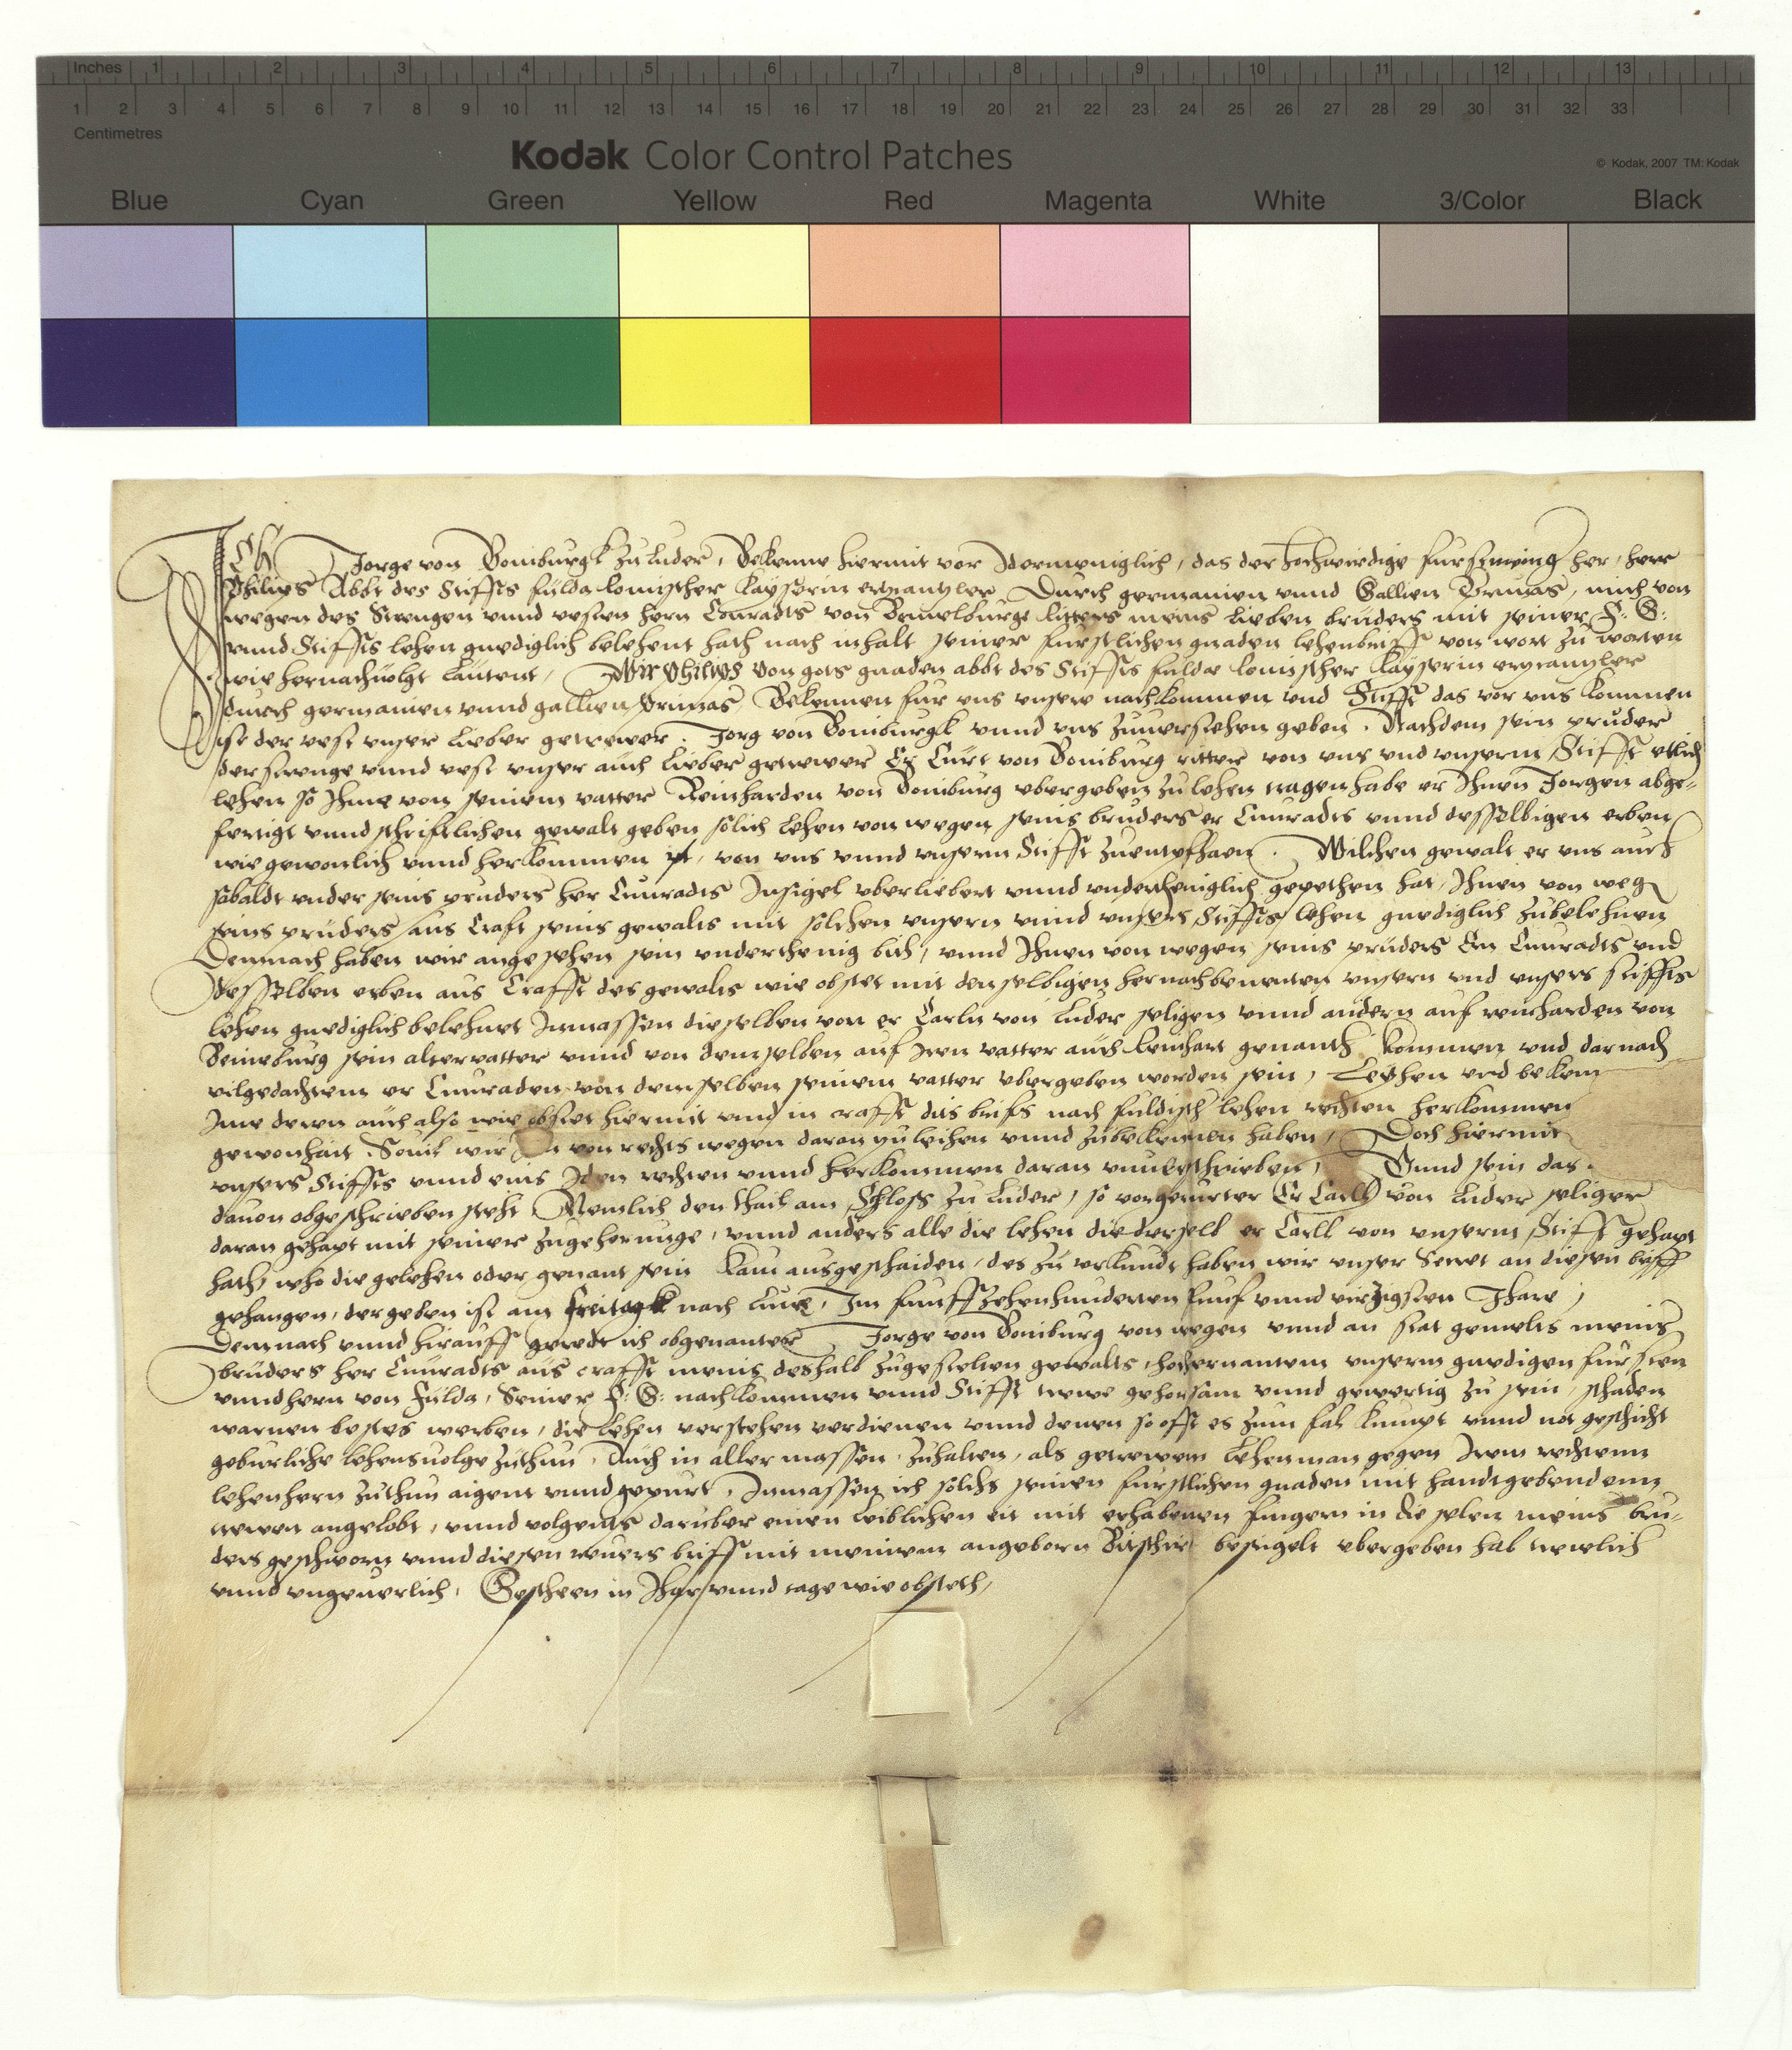 Inches 1 2 3 4 5 6 7 8 9 10 11 12 13
1 2 3 4 5 6 7 8 9 10 11 12 13 14 15 16 17 18 19 20 21 22 23 24 25 26 27 28 29 30 31 32 33
Centimetres
Kodak Color Control Patches
© Kodak, 2007 TM: Kodak
Blue Cyan Green Yellow Red Magenta White 3/Color Black
Ich Jorge von Boniburgk zu Luder, Bekenne hiermit vor Idermeniglich, das der hochwirdige furst her, herr
Philips Abbt des Stiffts Fulda Romischer Kayserin ertzcantzler Durch germanien vnnd Gallien Primas, mich von
wegen des Strengen vnnd vesten hern Conradts von Bemelburgk ritters meins lieben bruders mit seiner F: G:
vnnd Stiffts lehen gnediglich belehent hath nach inhalt seiner furstlichen gnaden lehenbriffs von wort zu worten
wie hernachuolgt lautent, Wir Philips von gots gnaden abbt des Stiffts fulda Romischer Kayserin ertzcantzler
durch germanien vnnd gallien Primas Bekennen fur vns vnsere nachkommen vnd Stifft das vor vns kommen
ist der vest vnser lieber getrewer Jorg von Boniburgk vnnd vns zuuerstehen geben. Nachdem sein pruder
der strenge vnnd vest vnser auch lieber getrewer Er Curt von Boniburg ritter von vns vnd vnserm Stifft etlich
lehen so Ihme von seinem vatter Reinharden von Boniburg vbergeben zu lehen tragen habe er Ihnen Jorgen abge-
fertigt vnnd schriftlichen gewalt geben solich lehen von wegen seins bruders er Cunradts vnnd desselbigen erben
wie gewonlich vnnd herkommen ist, von vns vnnd vnserm Stifft zuentpfhaen. Wilchen gewalt er vns auch
sobaldt vnder seins pruders her Cunradts Insigel vberliebert vnnd vndertheniglich gepethen hat, Ihnen von weg
seins pruders aus Craft seins gewalts mit solchen vnsern vnnd vnsers Stiffts lehen gnediglich zubelehnen
Demnach haben wir angesehen sein vnderthenig bith, vnnd Ihnen von wegen seins pruders Ern Cunradts vnd
desselben erben aus Crafft des gewalts wie obstet mit denselbigen hernachbenenten vnsern vnd vnsers stiffts
lehen gnediglich belehnet Inmassen dieselben von er Carln von Luder seligen vnnd andern auf reinharden von
Beineburg sein altervatter vnnd von demselben auf Iren vatter auch Reinhart genanth kommen vnd darnach
vilgedachtem er Cunraden von demselben seinem vatter vbergeben worden sein, Leyhen vnd beken
Ime deren auch also wie obstet hiermit vnnd in crafft dits briefs nach fuldisch lehen rechten herkommen
gewonhait. Souil wir von rechts wegen daran zu leihen vnnd zubekennen haben, Doch hiermit
vnsers Stiffts vnnd eins Iden rechten vnnd herkommen daran Vnnd sein das
dauon obgeschrieben steht Nemlich den thail am Schloss zu Luder, so vorgenanter Er Carll von Luder seliger
daran gehapt mit seiner zugehorunge, vnnd anders alle die lehen die derselb er Carll von vnserm Stifft gehapt
hath, who die gelehen oder genant sein Kain ausgeschaiden, des zu vrkundt haben wir vnser Secret an diesen briff
gehangen, der geben ist am freitagk nach Luce, Im funffzehenhunderten funf vnnd virzigsten Jhare,
Demnach vnnd hirauff gerede ich obgenanter Jorge von Boniburg von wegen vnnd an stat gemelts meins
bruders her Cunradts aus crafft meins deshalb zugestelten gewalts, hochernantem vnserm gnedigen fursten
vnnd hern von Fulda, Seiner F: G: nachkommen vnnd Stifft trewe gehorsam vnnd gewertig zu sein, schaden
warnen bestes werben, die lehen verstehen verdienen vnnd denen so offt es zum fal kumpt vnnd not geschicht
geburliche lehensuolge zuthun, Auch in aller massen zuhalten, als getrewem lehenman gegen Irem rechtenn
lehenhern zuthun aigent vnnd gepurt, Inmassen ich solchs seinen furstlichen gnaden mit handtgebendenn
trewen angelobt, vnnd volgents daruber einen leiblichen eit mit erhabenen fingern in die selen meins bru-
ders geschworn vnnd diesen reuers briff mit meinem angeborn Pitschir besigelt vbergeben hab trewlich
vnnd vngeuerlich, Gescheen in Jhar vnnd tage wie obsteth,